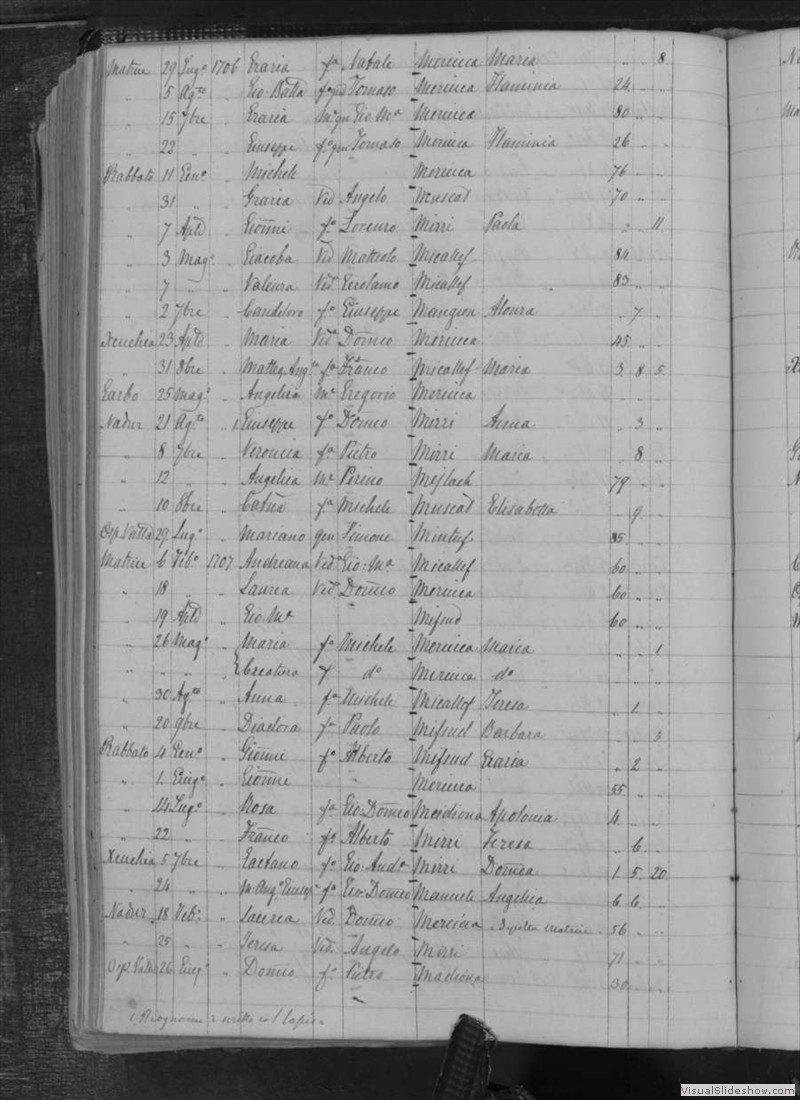 Matrice 29 Lug.o 1706 Grazia f.a Natale Mercieca Maria " " 8
" 5 Ag.to " Gio: Batta f.o qm Tomaso Mercieca Flaminia 24 " "
" 15 7bre " Grazia M.e qm Gio M.a Mercieca 80 " "
" 22 " " Giuseppe f.o qm Tomaso Mercieca Flaminia 26 " "
Rabbato 11 Gen.o " Michele Mercieca 76 " "
" 31 " " Grazia Vid. Angelo Muscat 70 " "
" 7 Aple " Gionni f.o Lorenzo Mizzi Paola " " 11
" 3 Mag.o " Giacoba Vid. Matteolo Micallef 84 " "
" 7 " " Valenza Vid. Gerolamo Micallef 83 " "
" 2 7bre " Candeloro f.o Giuseppe Mangion Alonza " 7 "
Xeuchia 23 Aple " Maria Vid.a Domco Mercieca 45 " "
" 31 8bre " Matteo Ang. f.o Franco Micallef Maria 3 8 5
Garbo 25 Mag.o " Angelica M.e Gregorio Mercieca
Nadur 21 Ag.to " 1 Giuseppe f.o Domco Mizzi Anna " 3 "
" 8 7bre " Veronica f.a Pietro Mizzi Maria " 8 "
" 12 " " Angelica M.e Perino Mejlach 79 " "
" 10 8bre " Catna f.a Michele Muscat Elisabetta " 9 "
Osp. Vatta 29 Lug.o " Marcano qm Simone Mintuf 85
Matrice 6 Feb.o 1707 Andreana Vid.a Gio: M.a Micallef 60 " "
" 18 " " Laurea Vid. Domco Mercieca 60 " "
" 19 Aple " Gio M.a Mifsud 60 " "
" 26 Mag.o " Maria f.a Michele Mercieca Maria " " 1
" " " " Creatura f do Mercieca do
" 30 Ag.to " Anna f.a Michele Micallef Teresa " 1 "
" 20 9bre " Diadora f.a Paolo Mifsud Barbara " " 3
Rabbato 4 Gen.o " Gionne f.o Alberto Mifsud Grazia " 2 "
" 1 Giug.o " Gionne Mercieca 55 " "
" 14 Lug.o " Rosa f.a Gio: Domco Meidiona Apolonia 4 " "
" 22 " " Franco f.o Alberto Mizzi Teresa " 6 "
Xeuchia 5 7bre " Gaetano f.o Gio: And.a Mizzi Domca 1 5 20
" 24 " " Ang. Giusep. f.o Gio: Domco Manueli Angelica 6 6 "
Nadur 18 Feb.o " Laurea Vid. Domco Mercieca Sepolta Matrice 56
" 25 " " Teresa Vid. Angelo Mizzi 71 "
Osp. Vatta 26 Giug.o " Domco f.o Pietro Madiona 30
1. Il cognome è scritto col lapis
VisualSlideshow.com